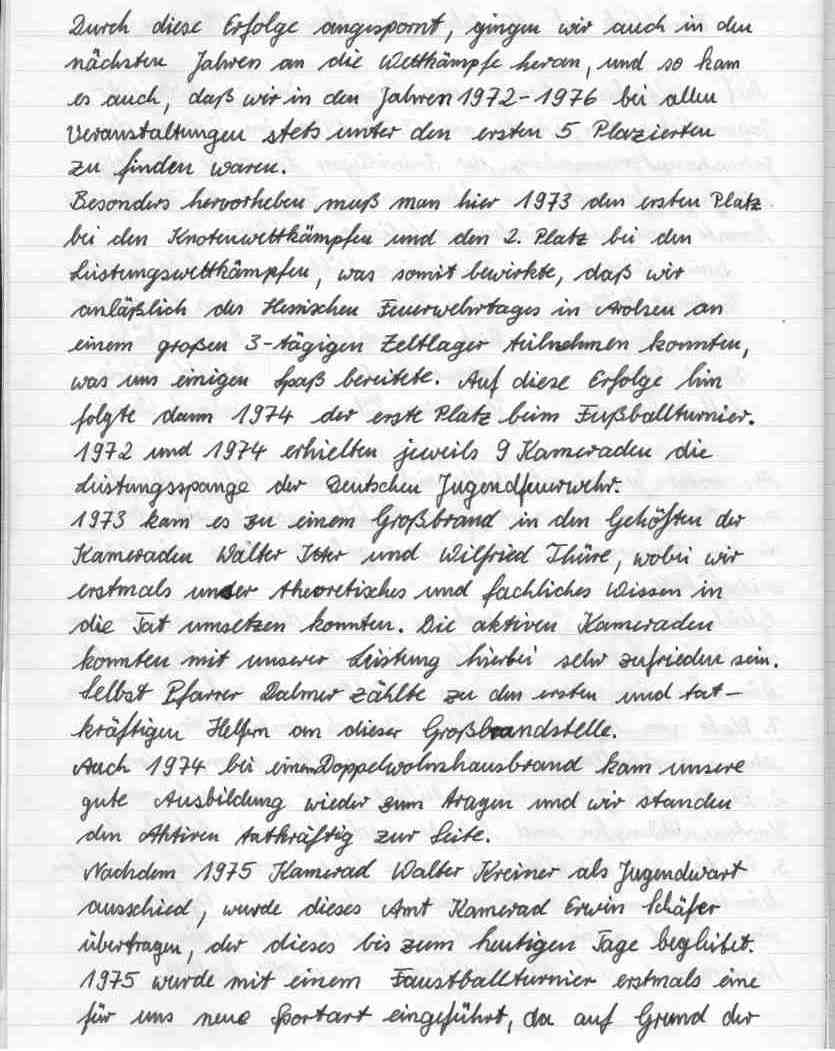 Durch diese Erfolge angespornt, gingen wir auch in den
nächsten Jahren an die Wettkämpfe heran, und so kam
es auch, daß wir in den Jahren 1972-1976 bei allen
Veranstaltungen stets unter den ersten 5 Plazierten
zu finden waren.
Besonders hervorheben muß man hier 1973 den ersten Platz
bei den Knotenwettkämpfen und den 2. Platz bei den
Leistungswettkämpfen, was somit bewirkte, daß wir
anläßlich des Hessischen Feuerwehrtages in Arolsen an
einem großen 3-tägigen Zeltlager teilnehmen konnten,
was uns einigen Spaß bereitete. Auf diese Erfolge hin
folgte dann 1974 der erste Platz beim Fußballturnier.
1972 und 1974 erhielten jeweils 9 Kameraden die
Leistungsspange der Deutschen Jugendfeuerwehr.
1973 kam es zu einem Großbrand in den Gehöften der
Kameraden Walter Itter und Wilfried Thüre, wobei wir
erstmals unser theoretisches und fachliches Wissen in
die Tat umsetzen konnten. Die aktiven Kameraden
konnten mit unserer Leistung hierbei sehr zufrieden sein.
Selbst Pfarrer Dalmer zählte zu den ersten und tat-
kräftigen Helfern an dieser Großbrandstelle.
Auch 1974 bei einem Doppelwohnhausbrand kam unsere
gute Ausbildung wieder zum tragen und wir standen
den Aktiven tatkräftig zur Seite.
Nachdem 1975 Kamerad Walter Kreiner als Jugendwart
ausschied, wurde dieses Amt Kamerad Erwin Schäfer
übertragen, der dieses bis zum heutigen Tage begleitet.
1975 wurde mit einem Faustballturnier erstmals eine
für uns neue Sportart eingeführt, da auf Grund der